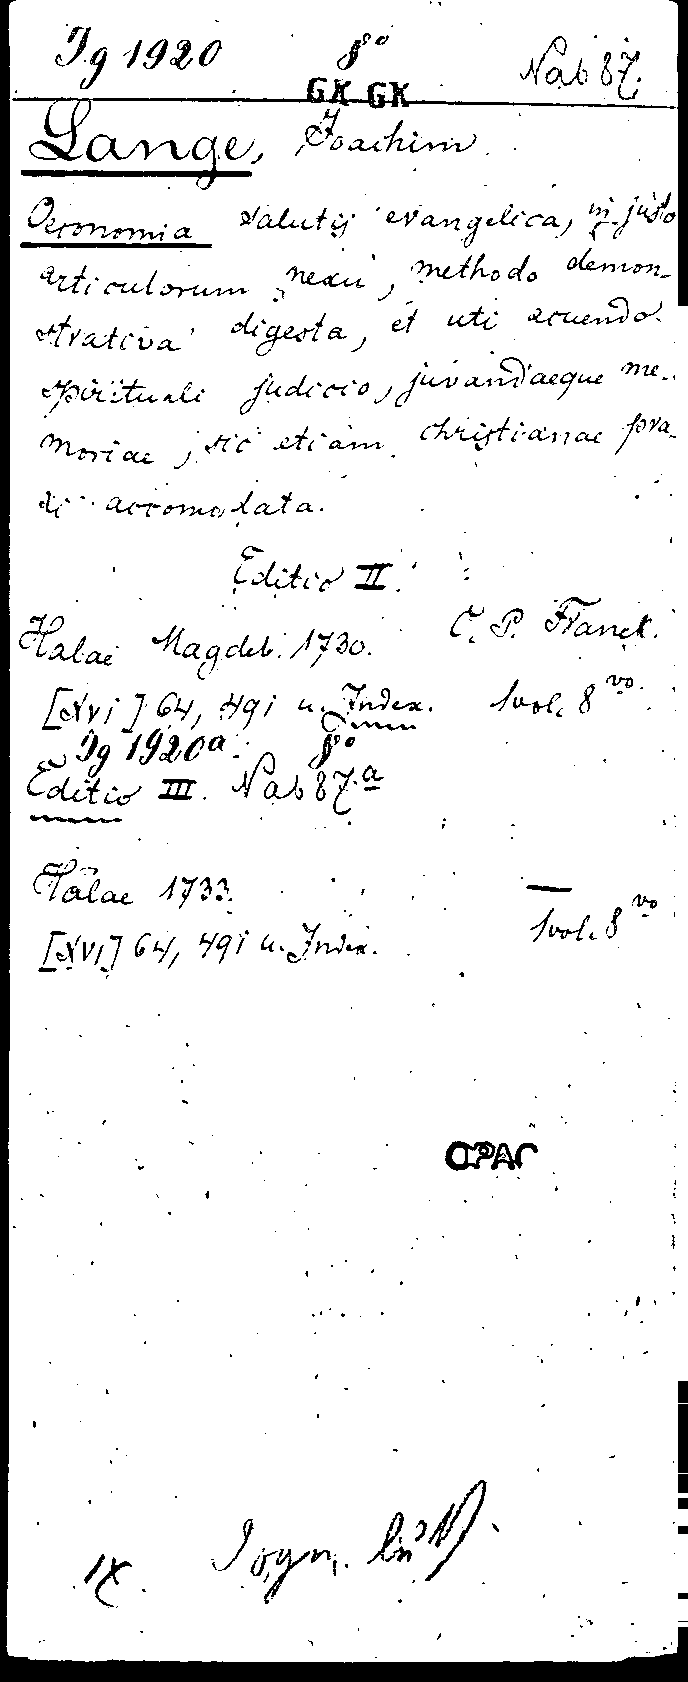 Ig 1920 8° Nab 87.
GK GK
Lange, Joachim.
Oeconomia salutis evangelica, in justo
articulorum nexu, methodo demon-
strativa digesta, et uti acuendo
spirituali judicio, juvandaeque me-
moriae, sic etiam christianae pra-
xi accomodata.
Editio II.
Halae Magdeb. 1730. C. P. Franck.
[XVI] 64, 491 u. Index. 1 vol. 8vo.
Ig 1920a. 8°
Editio III. Nab 87.a
Halae 1733. —
1 vol. 8vo
[XVI] 64, 491 u. Index.
OPAC
Dogm.
IX.